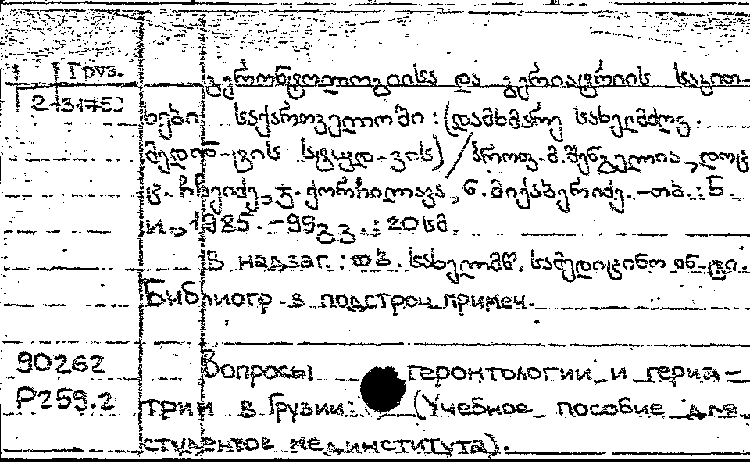 Груз.
გერონტოლოგიისა და გერიატრიის საკით-
2-31753
ხები საქართველოში : (დამხმარე სახელმძღვ.
მედინ-ტის სტუდ-ვის) / პროფ. მ. შენგელია, დოც
ც. ჩხეიძე, ჯ. ქორჩილავა, ნ. მიქაბერიძე. -თბ. : Б.
и., 1985. -99გვ. : 20სმ.
В надзаг. : თბ. სახელმწ. სამედიცინო ინ-ტი.
Библиогр. в подстроч. примеч.
90262
Вопросы геронтологии и гериа-
P259.2
трии в Грузии: (Учебное пособие для
студентов мединститута).